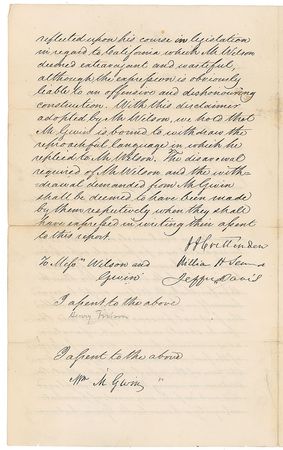 reflected upon his course in legislation
in regard to California which Mr. Wilson
deemed extravagant and wasteful,
although the expression is obviously
liable to an offensive and dishonouring
construction. With this disclaimer
adopted by Mr. Wilson, we hold that
Mr. Gwin is bound to withdraw the
reproachful language in which he
replied to Mr. Wilson. The disavowal
required of Mr. Wilson and the with-
drawal demanded from Mr. Gwin
shall be deemed to have been made
by them respectively when they shall
have expressed in writing their assent
to this report.
J J Crittenden
William H Seward
Jeffn Davis
To Messrs Wilson and
Gwin
I assent to the above
Henry Wilson
I assent to the above
Wm M Gwin